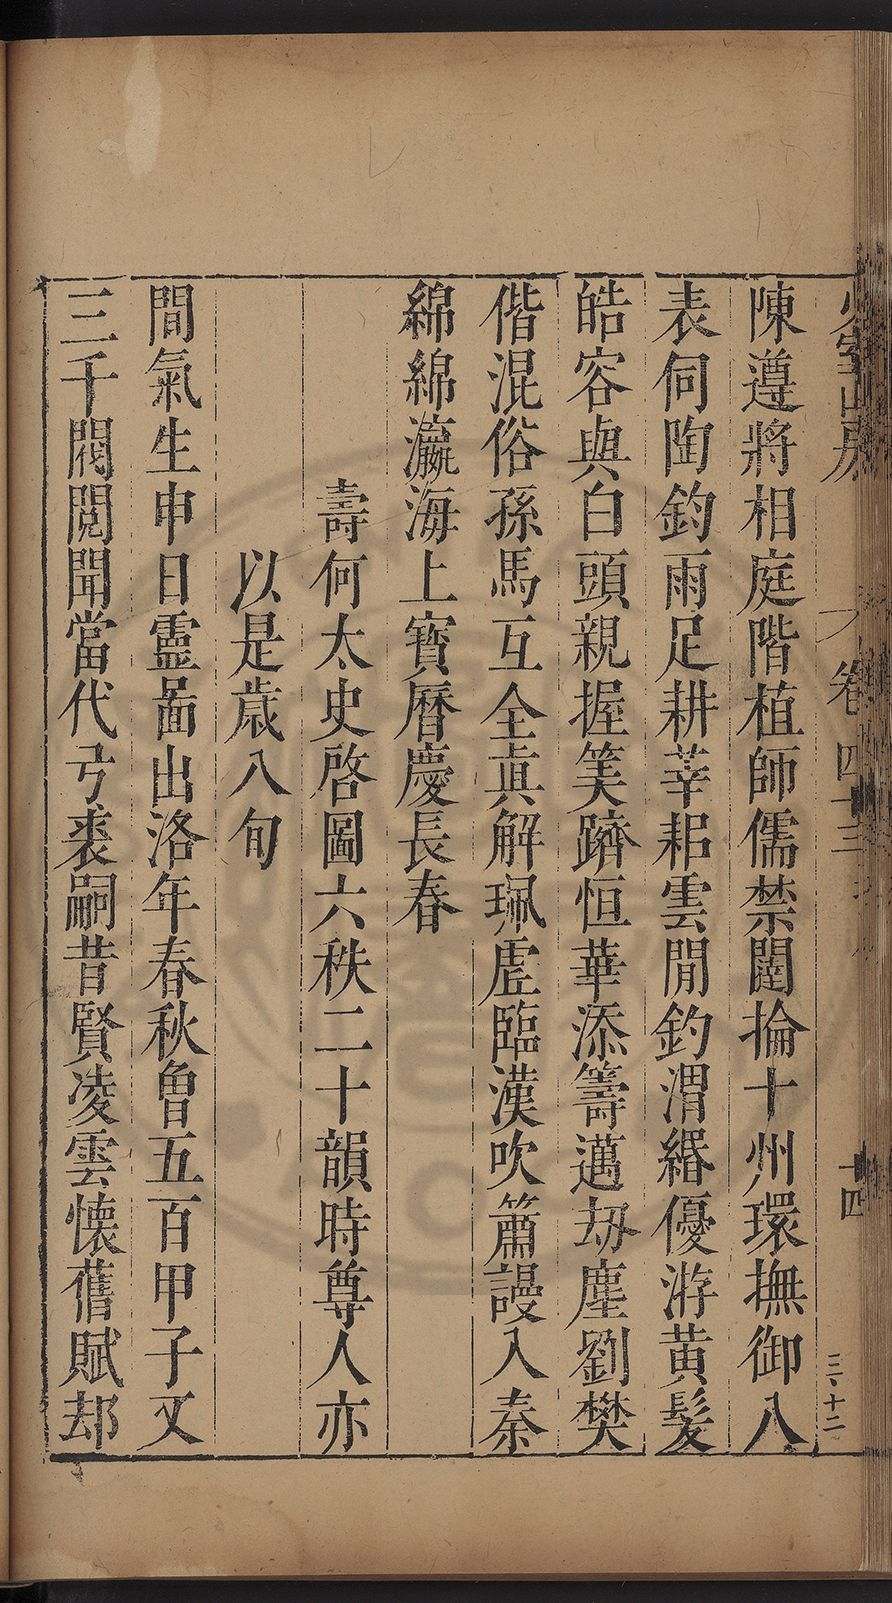 少室山房 卷四十三 十四 三、十二
陳遵將相庭階植師儒禁闥掄十州環撫御八
表伺陶鈞雨足耕莘耜雲閒釣渭緡優游黃髮
皓容與白頭親握筭躋恒華添籌邁劫塵劉樊
偕混俗孫馬互全真解珮虗臨漢吹簫謾入秦
綿綿瀛海上寶曆慶長春
壽何太史啓圖六秩二十韻時尊人亦
以是歲八旬
間氣生申日靈啚出洛年春秋魯五百甲子文
三千閥閱聞當代弓裘嗣昔賢凌雲懷舊賦却